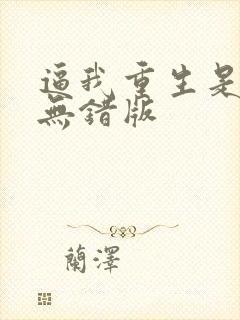 逼我重生是
無錯版
蘭澤